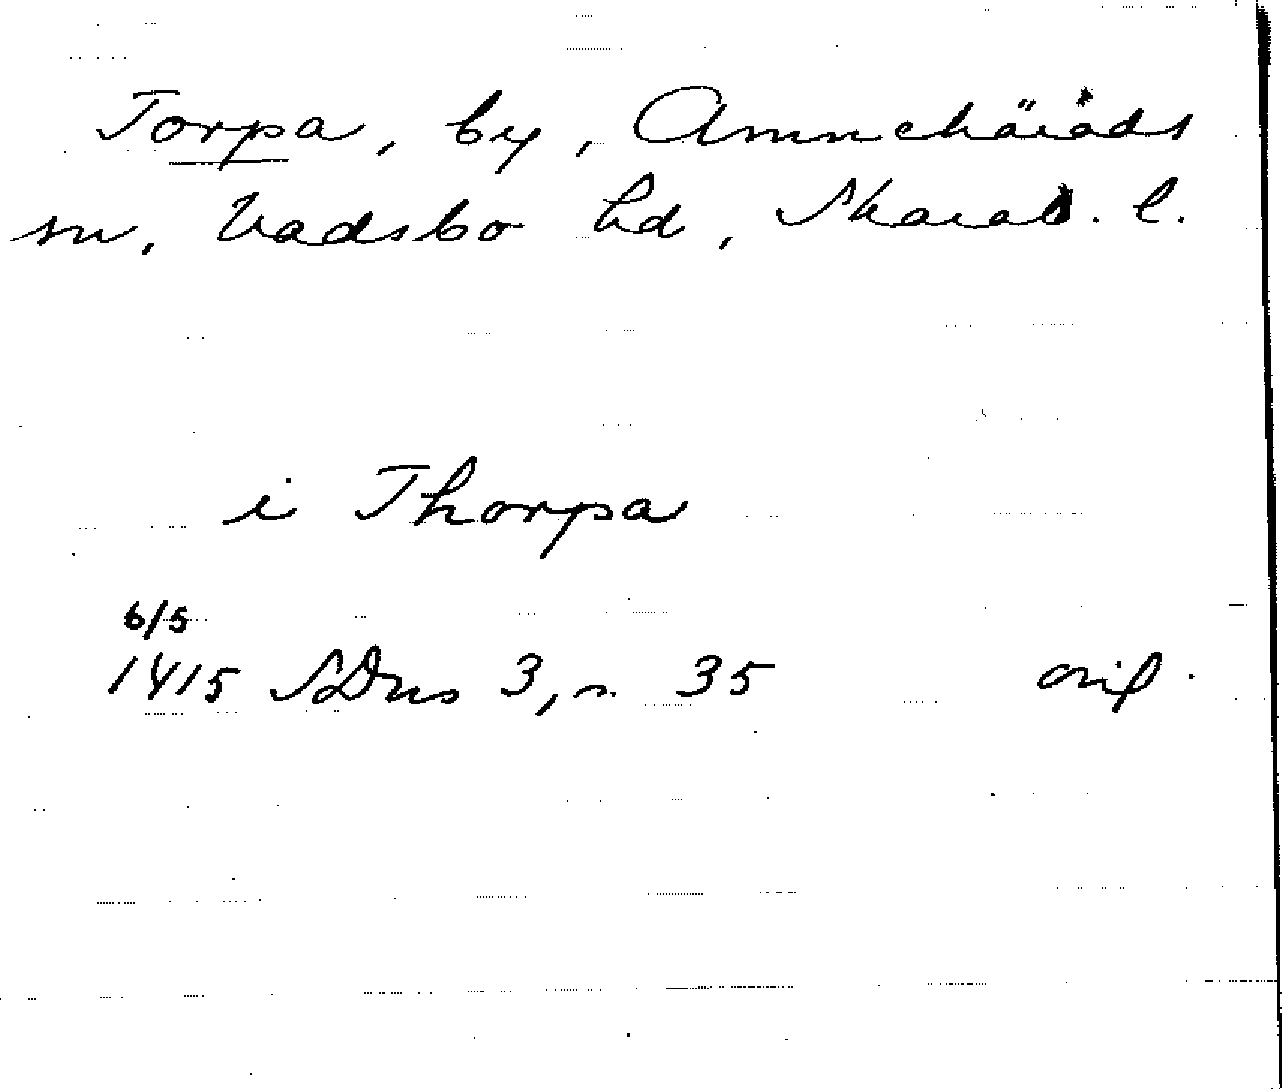 Torpa, by, Amnehärads
sn, Vadsbo hd, Skarab. l.
i Thorpa
6/5
1415 SDns 3, s. 35 orig.